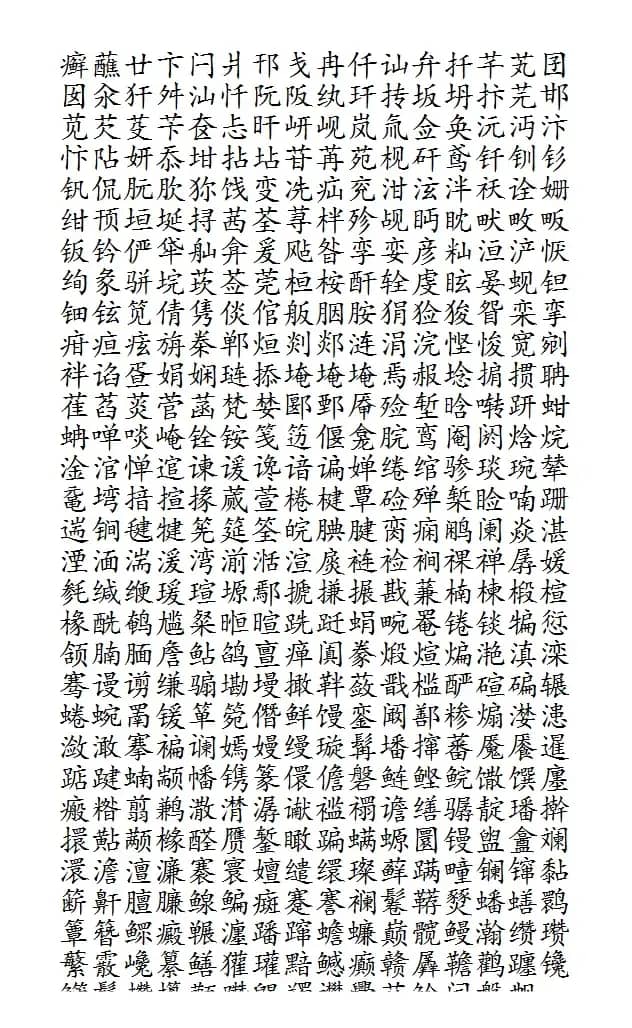 癣蘸廿卞闩爿邗戋冉仟讪弁扦芊芄囝
囡氽犴舛汕忏阮阪纨玕抟坂坍抃芫邯
苋芡芟苄奁忐旰岍岘岚氚佥奂沅沔汴
忭阽妍忝坩拈坫苷苒苑枧矸鸢钎钏钐
钒侃朊肷狝饯变冼疝兖泔泫泮祆诠姗
绀顸垣埏挦茜荃荨柈殄觇眄眈畎畋畈
钣钤俨弇舢弇爰飐昝孪娈彦籼洹浐恹
绚彖骈垸菼莶莞桓桉酐轻虔眩晏蚬钽
钿铉笕倩隽倓倌舨胭胺狷猃狻眢栾挛
疳疸痃旃秦郸烜剡郯涟涓浣悭悛宽剜
袢谄疍娟娴琏掭埯掩埯焉赧埝掮掼聃
萑萏菼菅菡梵婪郾鄄厣殓堑晗啭趼蚶
蚺啴啖崦铨铵笺笾偃龛脘鸾阉阏焓烷
淦涫惮逭谏谖谗谙谝婵绻绾骖琰琬辇
鼋塆揞揎掾葴萱棬楗覃硷殚椠睑喃跚
遄铜毽犍筅筵筌皖腆腱脔痫鹇阑焱湛
湮湎湍湲湾湔湉渲扊裢裣裥裸禅孱媛
毵缄缏瑗瑄塬鄢搋搛搌戡蒹楠楝椴楦
椽酰鹌尴粲暅暄跣跹蜎畹罨锩锬犏愆
颔腩腼詹鲇鹐亶瘅阗豢煅煊煸滟滇滦
骞谩谫缣骟墈墁撖靽蔹戬槛酽碹碥辗
蜷蜿罱锾箪箢僭鲜馒銮阚鄯糁煽漤漶
潋澉搴褊谰嫣嫚缦璇髯墦撺蕃魇餍暹
踮踺蝻颛幡镌篆儇儋磐鲢鲣鲩馓馔廛
瘢糌翦鹣潵潸潺谳褴褟谵缮骣靛璠擀
擐黇颟橼醛赝錾瞰蹁螨螈圜镘盥龠斓
澴澹澶濂褰寰嬗缱缳璨藓蹒疃镧镩黏
簖鼾膻臁鳈鳊癍蹇謇襕鬈鞯燹蟠蟮鹮
簟簪鳏癜囅瀍蹯蹿蟾蠊巅髋鳗瀚缵瓒
蘩霰巉纂鳝獾瓘黯鳡癫赣羼韂鹳躔镵